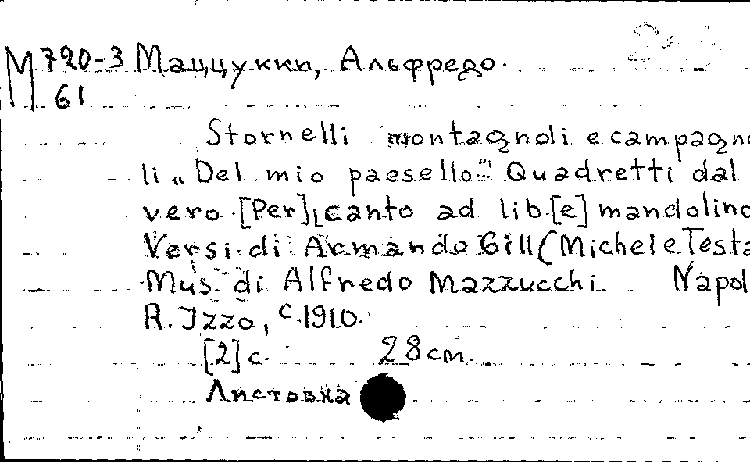 М 720-3 Маццукки, Альфредо.
61
Stornelli montagnoli e campagno
li „Del mio paesello" Quadretti dal
vero [Per] canto ad lib. [e] mandolino
Versi di Armando Gill (Michele Testa
Mus. di Alfredo Mazzucchi. Napol
R. Izzo, c. 1910.
[2] с. 28 cm.
Листовка